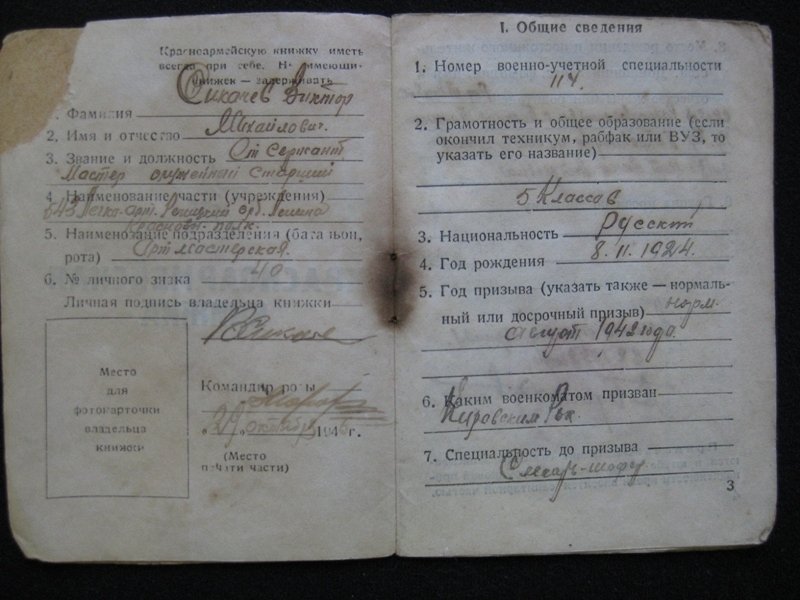 Красноармейскую книжку иметь
всегда при себе. Не имеющих
книжек — задерживать
1. Фамилия Сикачев Виктор
2. Имя и отчество Михайлович
3. Звание и должность Ст Сержант
Мастер оружейный старший
4. Наименование части (учреждения)
543 Легко-Арт.
полк.
5. Наименование подразделения (батальон,
рота) Арт мастерская.
6. № личного знака 40
Личная подпись владельца книжки
Место
для
фотокарточки
владельца
книжки
Командир роты
„29 октября 1946 г.
(Место
печати части)
I. Общие сведения
1. Номер военно-учетной специальности
114.
2. Грамотность и общее образование (если
окончил техникум, рабфак или ВУЗ, то
указать его название)
5 Классов
3. Национальность Русский
4. Год рождения 8. II. 1924.
5. Год призыва (указать также — нормаль-
ный или досрочный призыв) норм.
Август 1942 года.
6. Каким военкоматом призван
Кировским Рвк.
7. Специальность до призыва
Слесарь-шофер
3